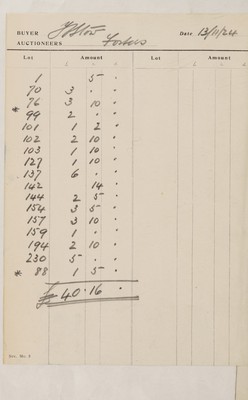 BUYER Date 13/11/24
AUCTIONEERS Fosters
Lot Amount Lot Amount
£ s d £ s d
1 5 "
70 3 " "
76 3 10 "
* 99 2 " "
101 1 2 "
102 2 10 "
103 1 10 "
127 1 10 "
137 6 " "
142 14 "
144 2 5 "
154 3 5 "
157 3 10 "
159 1 " "
194 2 10 "
230 5 " "
* 88 1 5 "
£ 40 . 16 "